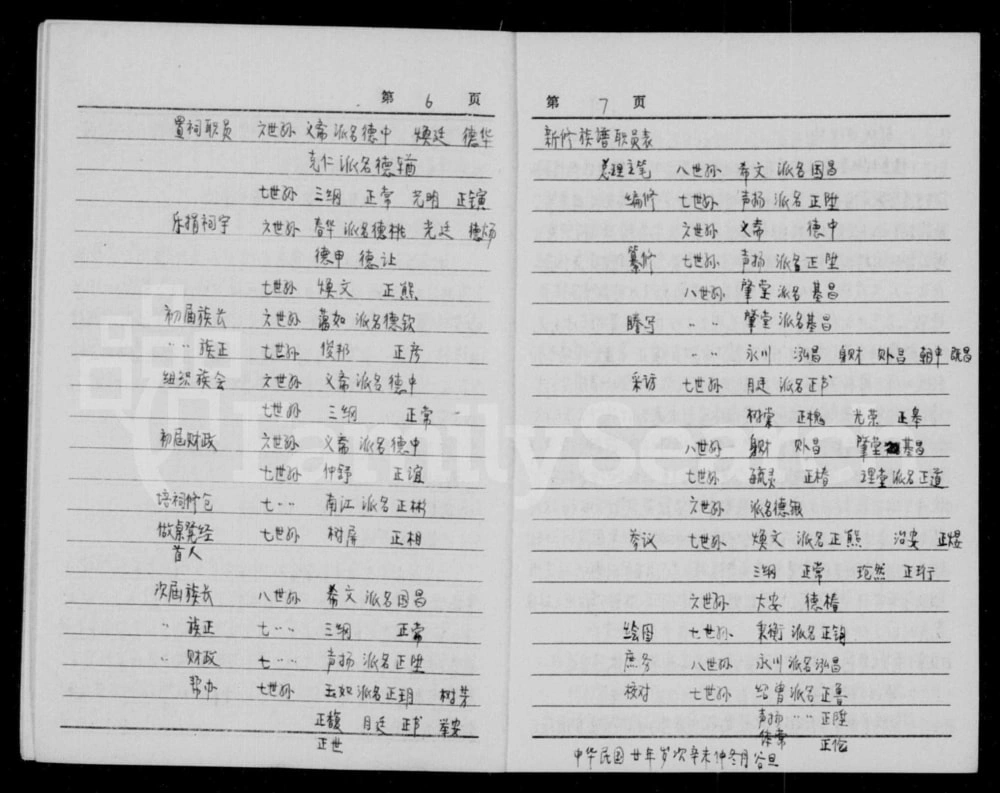 第 6 页
置祠职员 六世孙 义斋派名德中 焕廷 德华
克仁派名德
七世孙 三纲 正常 光明 正镇
乐捐祠宇 六世孙 春华派名德桃 光廷 德炳
德甲 德让
七世孙 焕文 正熊
初届族长 六世孙 蔼如派名德钦
〃〃 族正 七世孙 俊邦 正彦
组织族会 六世孙 义斋派名德中
七世孙 三纲 正常
初届财政 六世孙 义斋派名德中
七世孙 仲舒 正谊
培祠修仓 七〃〃 南江派名正彬
做桌凳经 七世孙 树屏 正相
首人
次届族长 八世孙 希文派名国昌
〃 族正 七〃〃 三纲 正常
〃 财政 七〃〃 声扬派名正陞
帮办 七世孙 玉如派名正玥 树芽
正馥 月廷 正书 举安
正世
第 7 页
新修族谱职员表
总理主笔 八世孙 希文 派名国昌
编修 七世孙 声扬 派名正陞
六世孙 义斋 德中
纂修 七世孙 声扬 派名正陞
八世孙 肇堂 派名基昌
腾写 〃〃 肇堂派名基昌
〃〃 永川 泓昌 躬财 贝昌 朝中 昌
采访 七世孙 月廷 派名正书
树棠 正槐 光荣 正举
八世孙 躬财 贝昌 肇堂基昌
七世孙 毓灵 正椿 理堂派名正道
六世孙 派名德
参议 七世孙 焕文 派名正熊 治安 正煜
三纲 正常 琼然 正珩
六世孙 大安 德椿
绘图 七世孙 秉衡派名正销
庶务 八世孙 永川派名泓昌
校对 七世孙 绍曾派名正鲁
声扬 〃 正陞
作棠 正伦
中华民国廿年岁次辛未仲冬月谷旦
FamilySearch